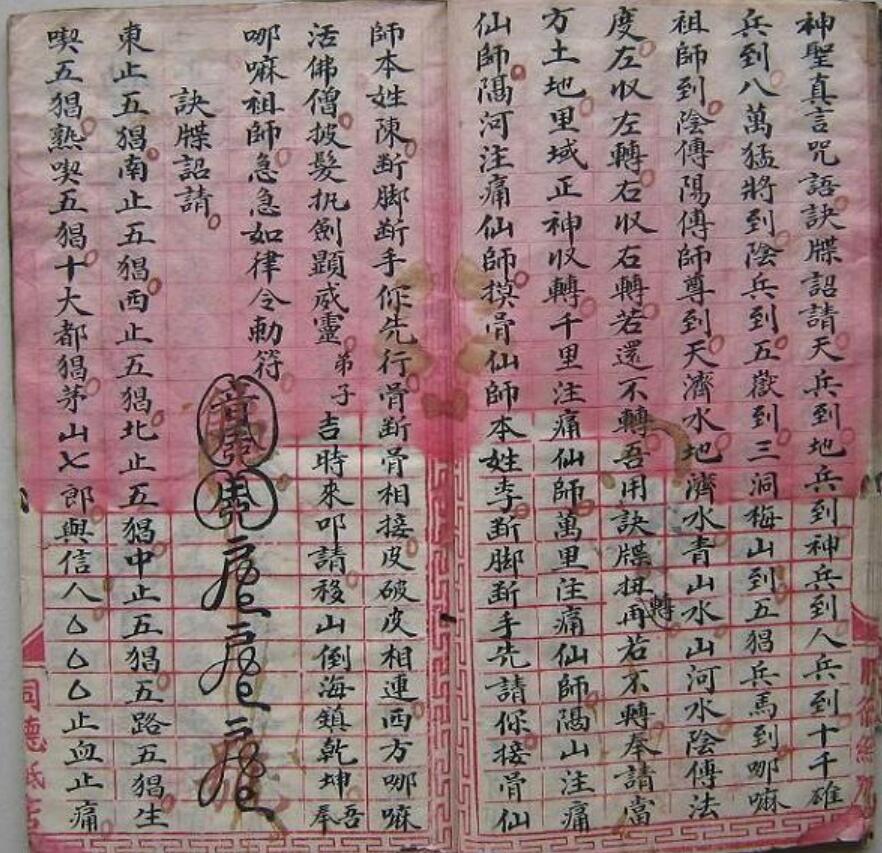 神聖真言咒語訣牒詔請天兵到地兵到神兵到人兵到十千雄
兵到八萬猛將到陰兵到五嶽到三洞梅山到五猖兵馬到哪嘛
祖師到陰傳陽傳師尊到天濟水地濟水青山水山河水陰傳法
度左収左轉右収右轉若還不轉吾用訣牒扭轉再若不轉奉請當
方土地里域正神収轉千里注痛仙師萬里注痛仙師隔山注痛
仙師隔河注痛仙師摸骨仙師本姓李斷脚斷手先請你接骨仙
師本姓陳斷脚斷手你先行骨斷骨相接皮破皮相連西方哪嘛
活佛僧披髮執劍顯威靈弟子吉時來叩請移山倒海鎮乾坤吾奉
哪嘛祖師急急如律令勅符
訣牒詔請
東止五猖南止五猖西止五猖北止五猖中止五猖五路五猖生
喫五猖熟喫五猖十大都猖茅山七郎與信人厶厶厶止血止痛
同德紙店